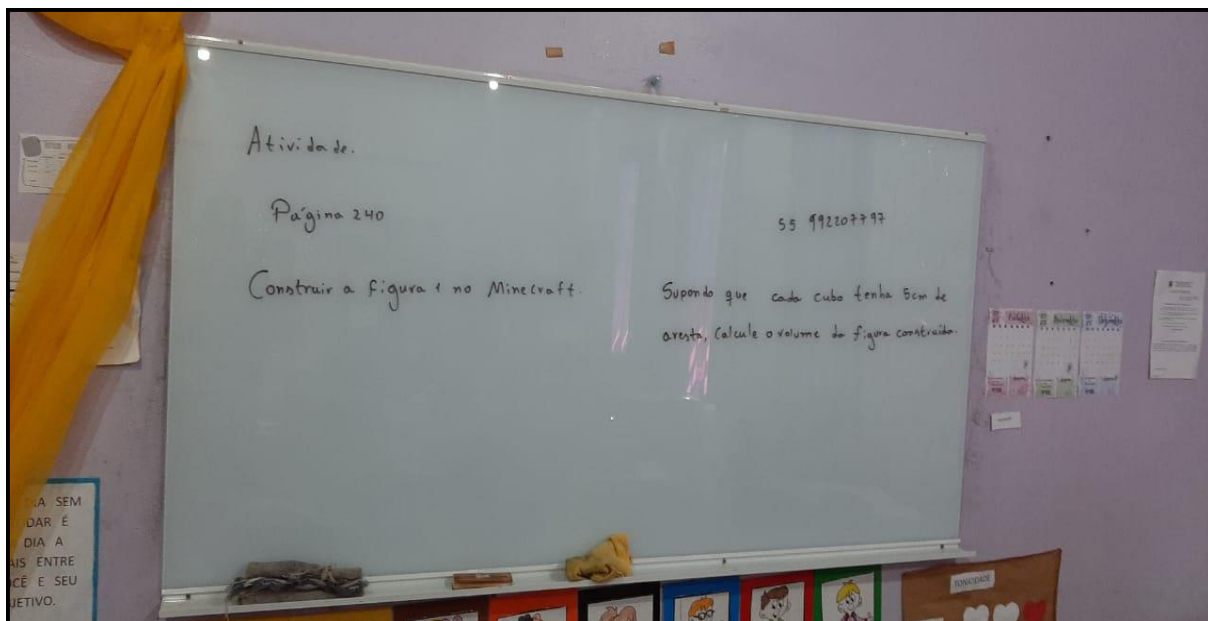 Atividade.
Página 240
Construir a figura 1 no Minecraft.
55 992207797
Supondo que cada cubo tenha 5cm de
aresta, Calcule o volume da figura construída.
SEM
DAR É
DIA A
ENTRE
E SEU
TONICIDADE